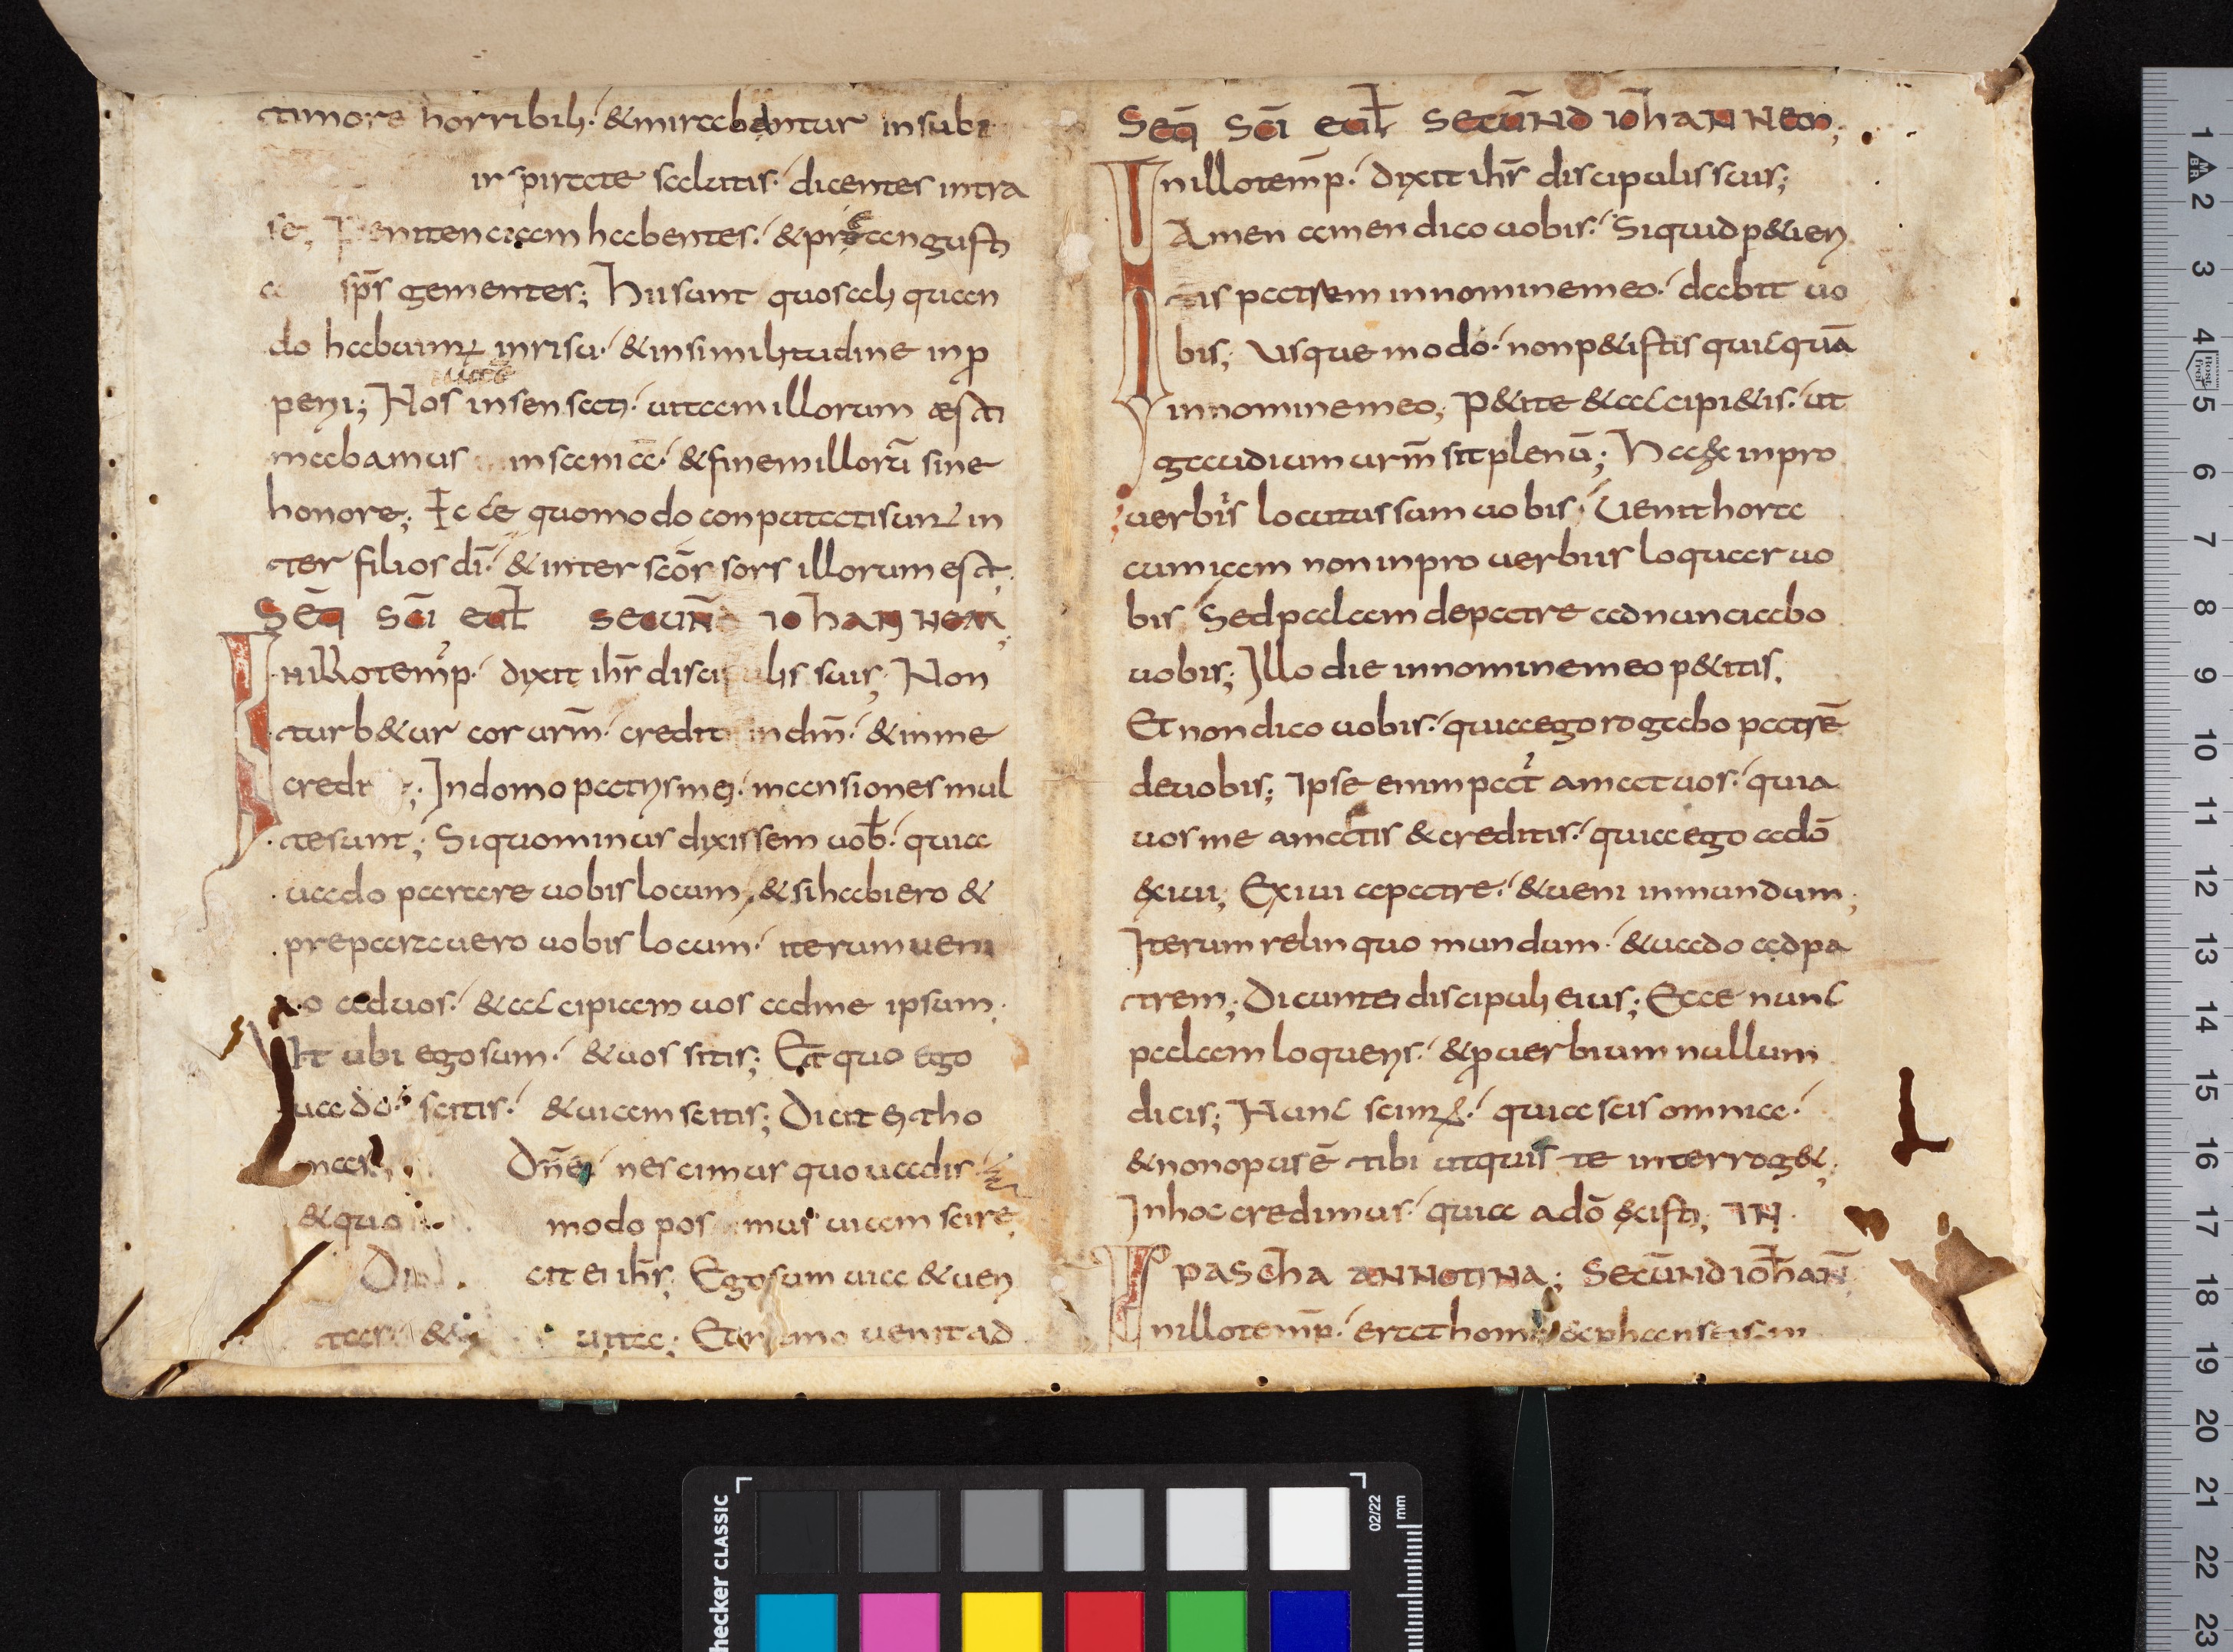 timore horribili · & mirabantur in subi
inspirate salutis · dicentes intra
se; Penitenciam habentes · & pre angusti
sp̄s gementes; Hii sunt quos ali quan
do habuim; inrisu · & insimilitudine inp̄
perii; Nos insensati · uitam illorum esti
mabamus insania · & finem illorū sine
honore; Ecce quomodo conputati sunt in
ter filios dī · & inter scōr sors illorum est;
Seq̄ scī eūl secūnd iohannem;
In illo temp̄ · dixit ihs̄ discipulis suis; Non
turb&ur cor urm̄ · credit in dm̄ · & in me
credi ; In domo patris mei · mansiones mul
te sunt; Si quo minus dixissem uob̄ · quia
uado parare uobis locum, & si habiero &
preparauero uobis locum · iterum ueni
o ad uos · & accipiam uos ad me ipsum;
Ut ubi ego sum · & uos sitis; Et quo ego
uado · scitis · & uiam scitis; Dicit ei tho
mas, Dn̄e · nescimus quo uadis ·
& quo modo pos mus uiam scire;
cit ei ihs̄; Ego sum uia & ueri
tas & uita; nemo uenit ad
Seq̄ scī eūl secūnd iōhannem;
In illo temp̄ · dixit ihs̄ discipulis suis;
Amen amen dico uobis · Si quid p&ieri
tis patrem in nomine meo · dabit uo
bis; Usque modo · non p&istis quicquā
in nomine meo; P&ite & accipi&is · ut
gaudium urm̄ sit plenū; Haec in pro
uerbiis locutus sum uobis · Uenit hora
cum iam non in prouerbiis loquar uo
bis Sed palam de patre adnunciabo
uobis; Illo die in nomine meo p&itis,
Et non dico uobis · quia ego rogabo patrē
de uobis; Ipse enim pat amat uos · quia
uos me amatis & creditis · quia ego a dō
exiui; Exiui a patre · & ueni in mundum;
Iterum relinquo mundum · & uado ad pa
trem; Dicunt ei discipuli eius; Ecce nunc
palam loqueris · & p̄uerbium nullum
dicis; Nunc scim; · quia scis omnia ·
& non opus ē tibi ut quis te interrog&;
In hoc credimus · quia a dō existi; IN
pascha annotina; Secūnd iohan̄
In illo temp̄ · erat homo